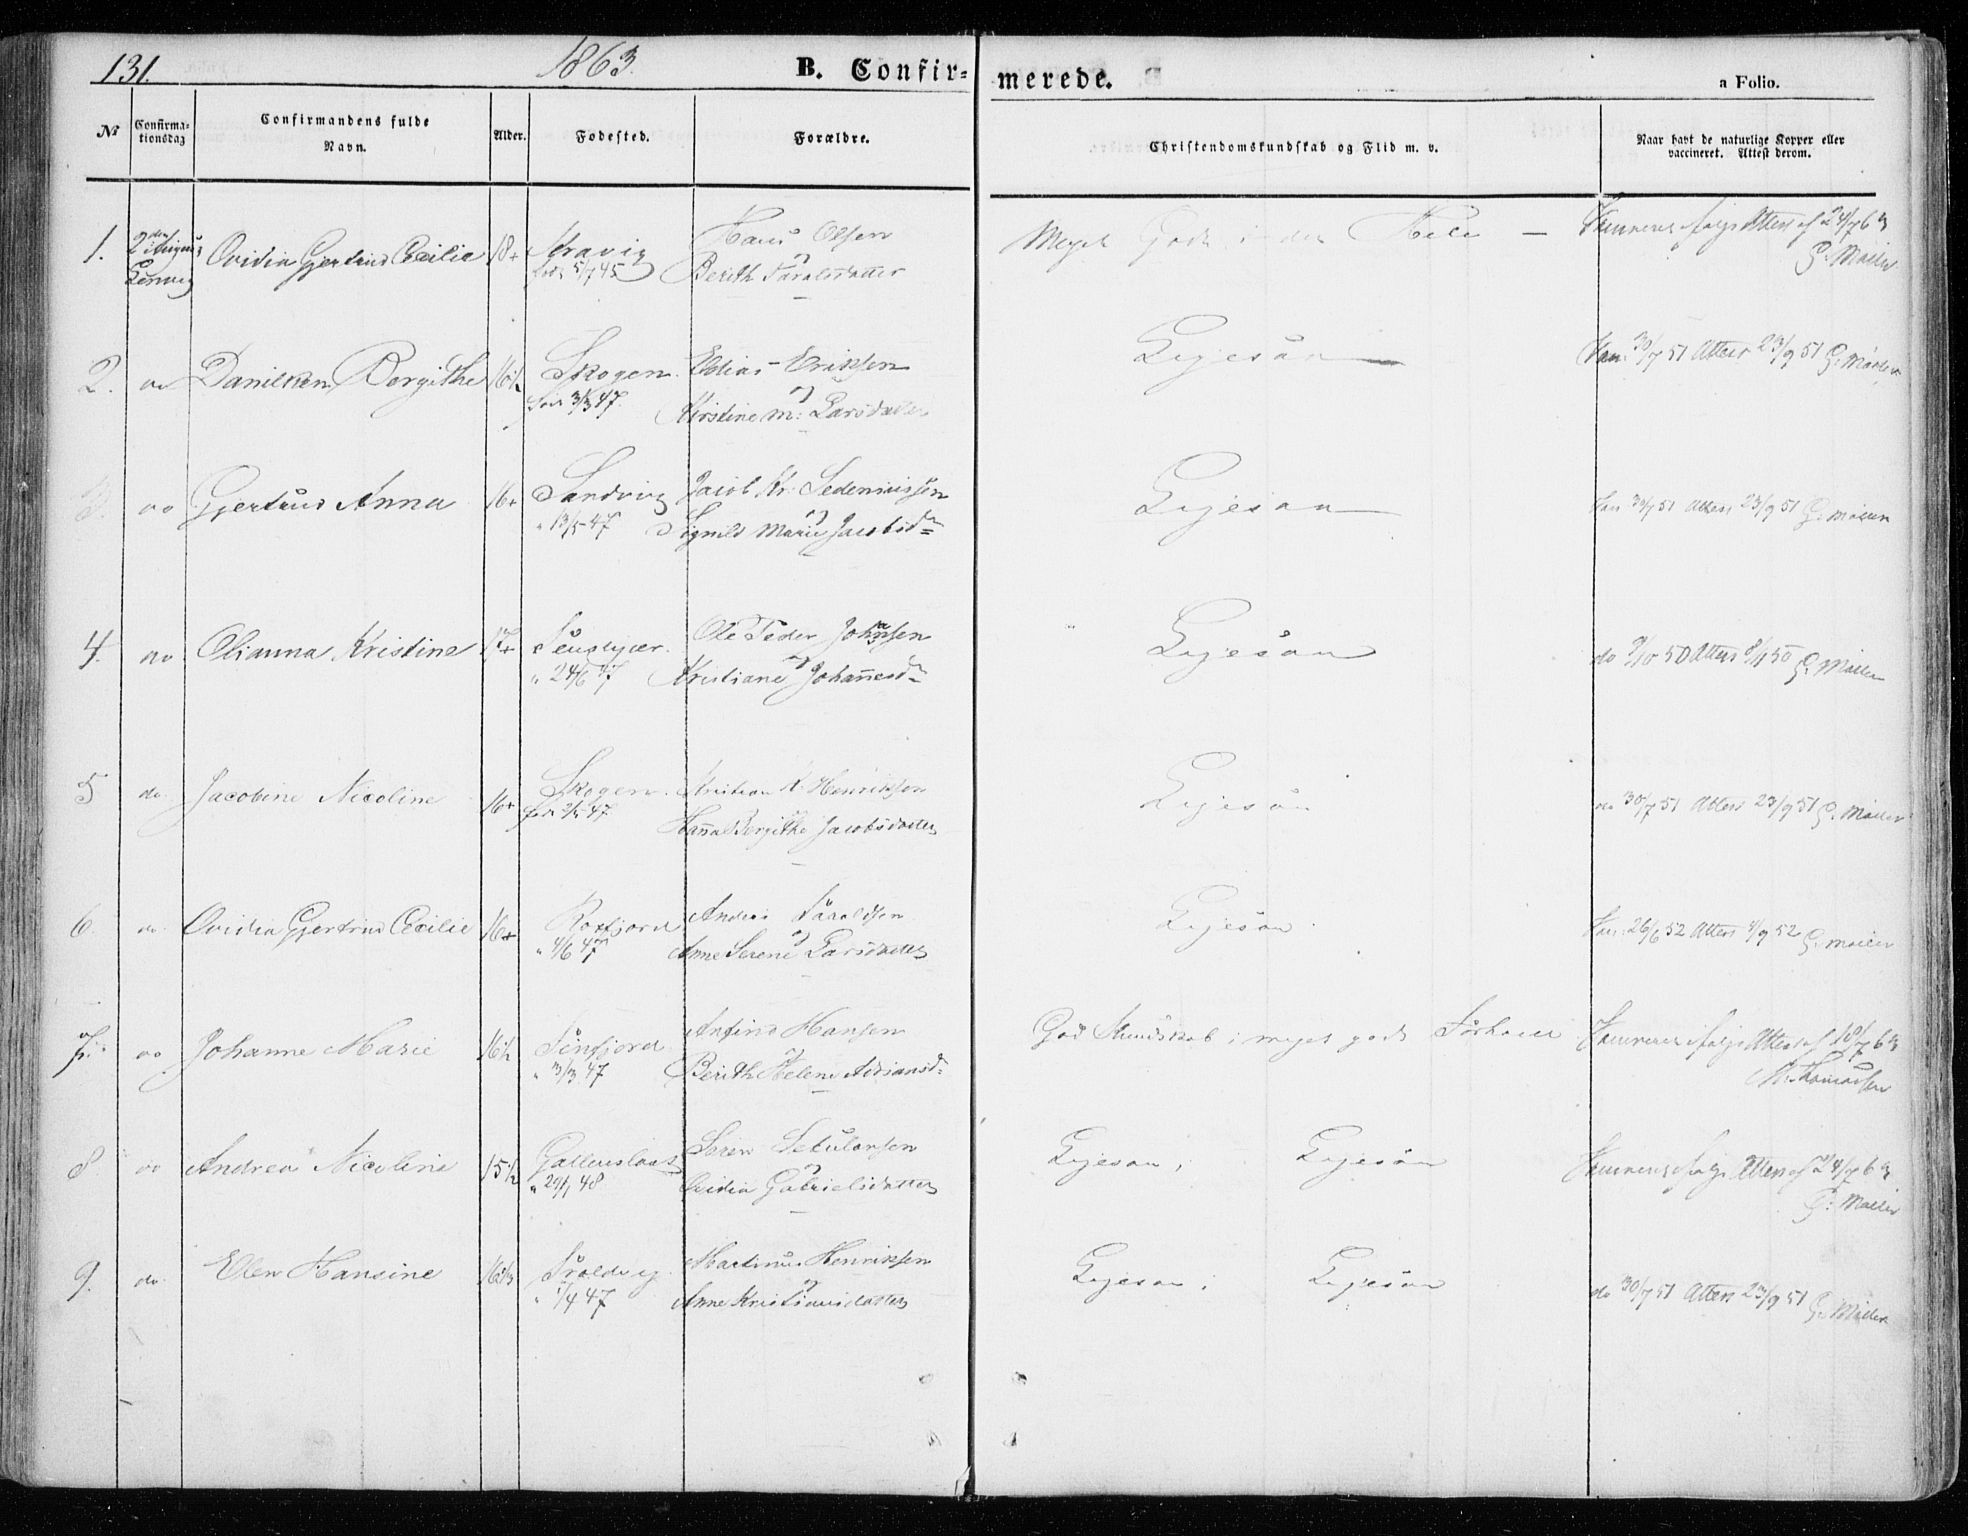 131.
1863.
B. Confir-
merede.
a Folio.
№
Confirma-
tionsdag
Confirmandens fulde
Navn.
Alder.
Fødested.
Forældre.
Christendomskundskab og Flid m. v.
Naar havt de naturlige Kopper eller
vaccineret. Attest derom.
1.
Ovidia Gjertrud Cecilie
18+
født 5/7 45
Hans Olsen
og
Berith Taraldsdatter
Meget Godt i det Hele —
Attest af 24/7 63
G. Møller
2.
do
Borgithe
16½
Skogen
født 3/3 47.
Elias Eriksen
og
Kirstine M: Larsdatter
Ligesaa
Vac: 30/7 51 Attest 23/9 51 G. Møller
3.
do
Gjertrud Anna
16+
Sandvig
" 13/5 47
Jacob Kr:
og
Marie Jacobsd
Ligesaa
Vac 30/7 51 Attest 23/9 51 G. Møller
4.
do
Olianna Kristine
17+
" 24/6 47
Ole Peder Johnsen
og
Kristiane Johannesd
Ligesaa
do 9/10 50 Attest 8/11 50 G. Møller
5
do.
Jacobine Nicoline
16+
Skogen
født 2/5 47
Kristian K. Henriksen
og
Hanna Bergithe Jacobsdatter
Ligesaa
do 30/7 51 Attest 23/9 51 G. Møller
6.
do.
Ovidia Gjertrud Cecilie
16+
Roxfjord
" 4/6 47
Anders Taraldsen
og
Anne Serene Larsdatter
Ligesaa
Vac: 26/6 52 Attest 4/9 52 G. Møller
7.
do
Johanne Marie
16½
" 3/3 47
Arfind Hansen
og
Berith Helene Adriansd
God Kundskab i meget godt Forhold
Attest af 18/7 63
M. Thomassen
8
do
Andrea Nicoline
15½
" 29/1 48
Søren
og
Ovidia Gabrielsdatter
Ligesaa i Ligesaa
Attest af 24/7 63
G. Møller
9.
do.
Elen Hansine
Troldvig
" 1/4 47
Martinus Henriksen
og
Anne Kristiansdatter
Ligesaa i Ligesaa
do 30/7 51 Attest 23/9 51 G. Møller